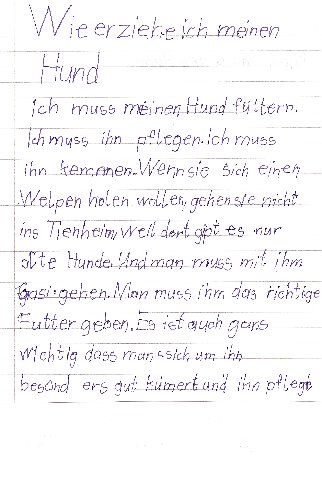 Wie erziehe ich meinen
Hund
Ich muss meinen Hund füttern.
Ich muss ihn pflegen. Ich muss
ihn kemmen. Wenn sie sich einen
Welpen holen wollen, gehen sie nicht
ins Tierheim, weil dort gibt es nur
alte Hunde. Und man muss mit ihm
Gasi gehen. Man muss ihm das richtige
Futter geben. Es ist auch gans
wichtig dass man sich um ihn
besond ers gut kümert und ihn pflegt